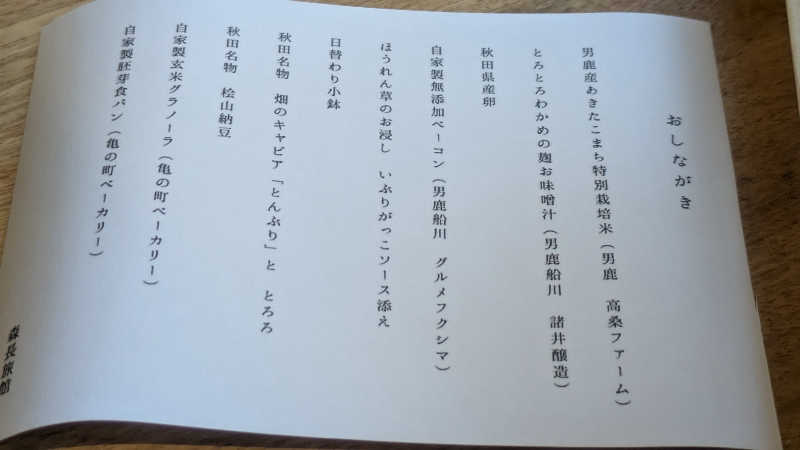 おしながき
男鹿産あきたこまち特別栽培米（男鹿　高桑ファーム）
とろとろわかめの麹お味噌汁（男鹿船川　諸井醸造）
秋田県産卵
自家製無添加ベーコン（男鹿船川　グルメフクシマ）
ほうれん草のお浸し　いぶりがっこソース添え
日替わり小鉢
秋田名物　畑のキャビア「とんぶり」と　とろろ
秋田名物　桧山納豆
自家製玄米グラノーラ（亀の町ベーカリー）
自家製胚芽食パン（亀の町ベーカリー）
森長旅館